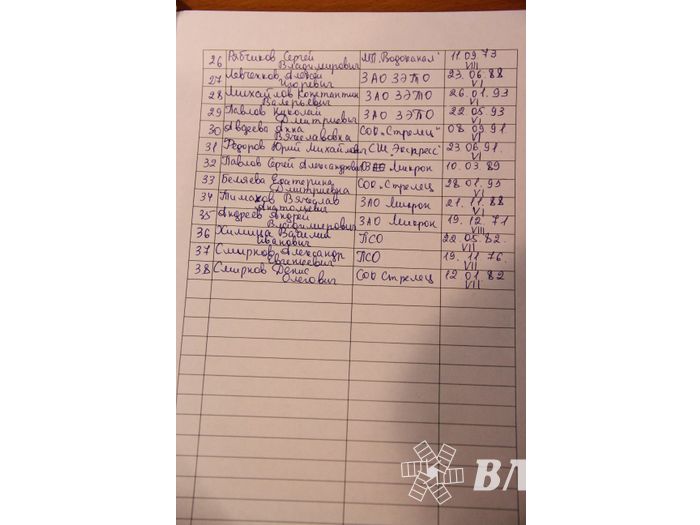 26 Рябчиков Сергей МП „Водоканал" 11.09.73
Владимирович VIII
27 Левченков Алексей ЗАО ЗЭТО 23.06.88
Игоревич VI
28 Михайлов Константин ЗАО ЗЭТО 26.01.93
Валерьевич VI
29 Павлов Николай ЗАО ЗЭТО 22.05.93
Дмитриевич VI
30 Авдеева Анна СОО „Стрелец" 08.09.91
Вячеславовна VI
31 Федоров Юрий Михайлович СШ „Экспресс" 23.06.91.
32 Павлов Сергей Александрович ЗАО Микрон 10.03.89
33 Беляева Екатерина СОО „Стрелец 28.01.95
Дмитриевна VI
34 Вячеслав ЗАО Микрон 21.11.88
Анатольевич VI
35 Андреев Андрей ЗАО Микрон 19.12.71
Владимирович VIII
36 Химина ПСО 22.05.82.
Иванович VII
37 Смирнов Александр ПСО 19.11.76.
Евгеньевич VII
38 Смирнов Денис СОО Стрелец 12.01.82
Олегович VII
ВЛ